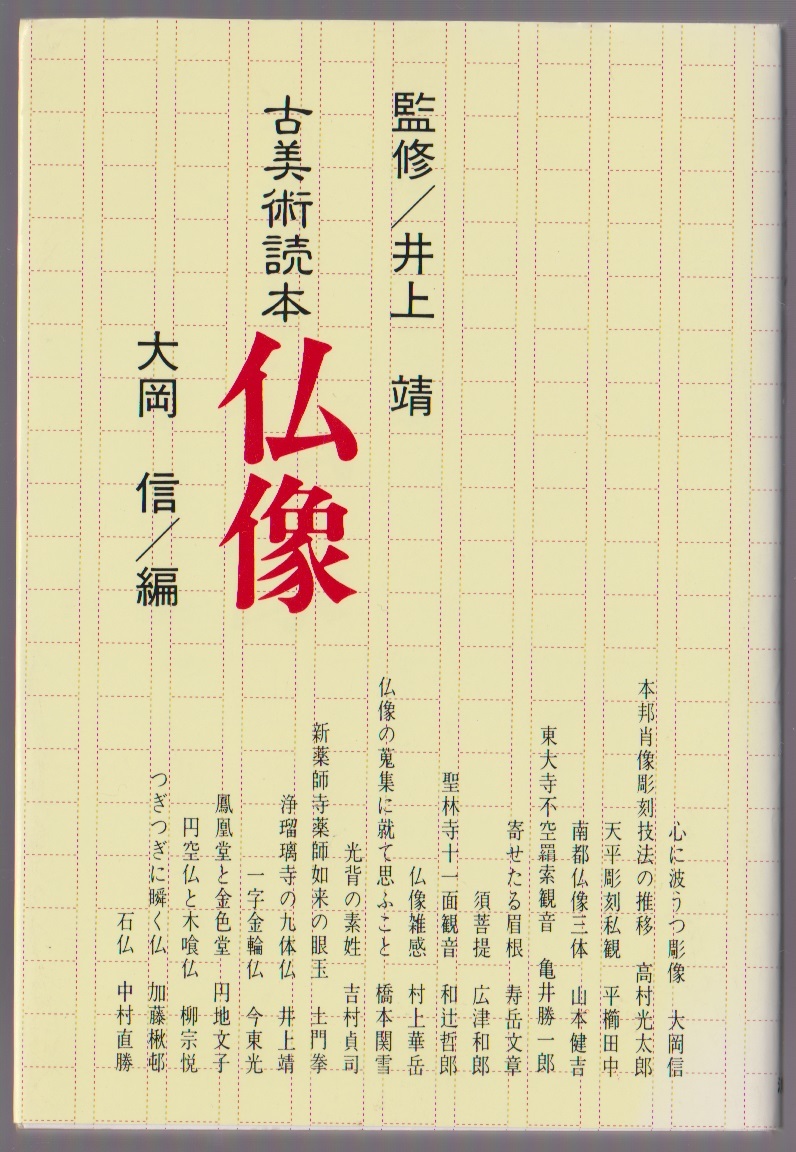 監修／井上　靖
古美術読本
仏像
大岡　信／編
心に波うつ彫像　大岡信
本邦肖像彫刻技法の推移　高村光太郎
天平彫刻私観　平櫛田中
南都仏像三体　山本健吉
東大寺不空羂索観音　亀井勝一郎
寄せたる眉根　寿岳文章
須菩提　広津和郎
聖林寺十一面観音　和辻哲郎
仏像雑感　村上華岳
仏像の蒐集に就て思ふこと　橋本関雪
光背の素姓　吉村貞司
新薬師寺薬師如来の眼玉　土門拳
浄瑠璃寺の九体仏　井上靖
一字金輪仏　今東光
鳳凰堂と金色堂　円地文子
円空仏と木喰仏　柳宗悦
つぎつぎに瞬く仏　加藤楸邨
石仏　中村直勝